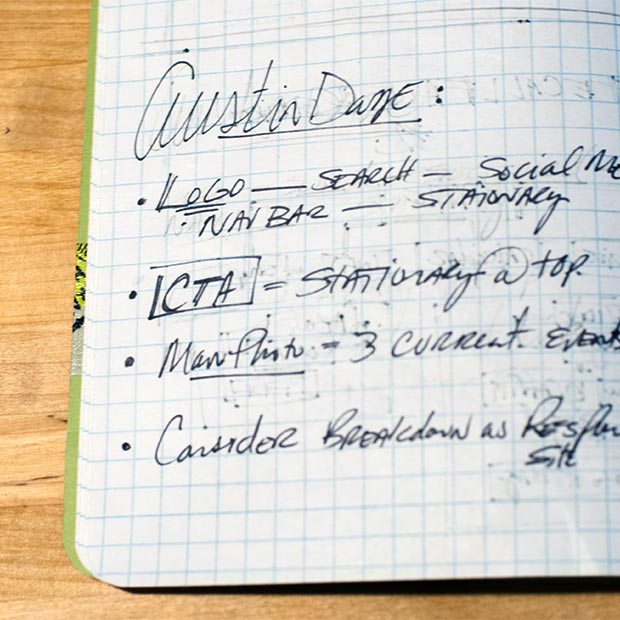 Austin Daze :
• LOGO — SEARCH — Social Me
NAV BAR — STATIONARY
• CTA = STATIONARY @ TOP.
• Main Photo = 3 CURRENT. EVENTS
• Consider BREAKDOWN as Respon
Site